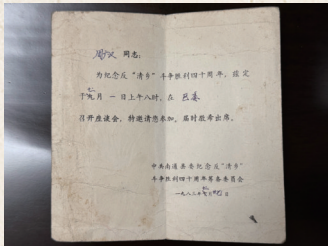 同志:
为纪念反“清乡”斗争胜利四十周年,兹定
于九月一日上午八时,在 县委
召开座谈会,特邀请您参加,届时敬希出席。
中共南通县委纪念反“清乡”
斗争胜利四十周年筹备委员会
一九八三年 月 日